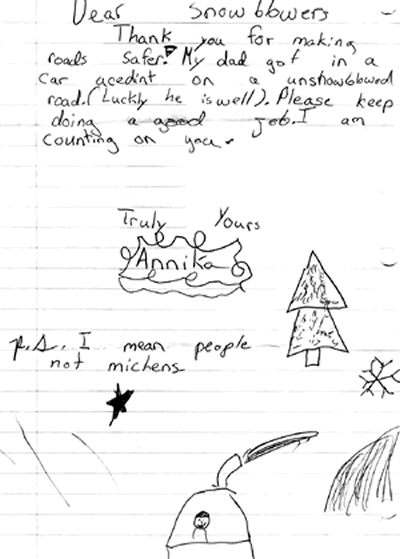 Dear Snowblowers
Thank you for making
roads safer! My dad got in a
car acedint on a unshowblowed
road. (Luckly he is well). Please keep
doing a good job. I am
counting on you.
Truly Yours
Annika
p.s. I mean people
not michens